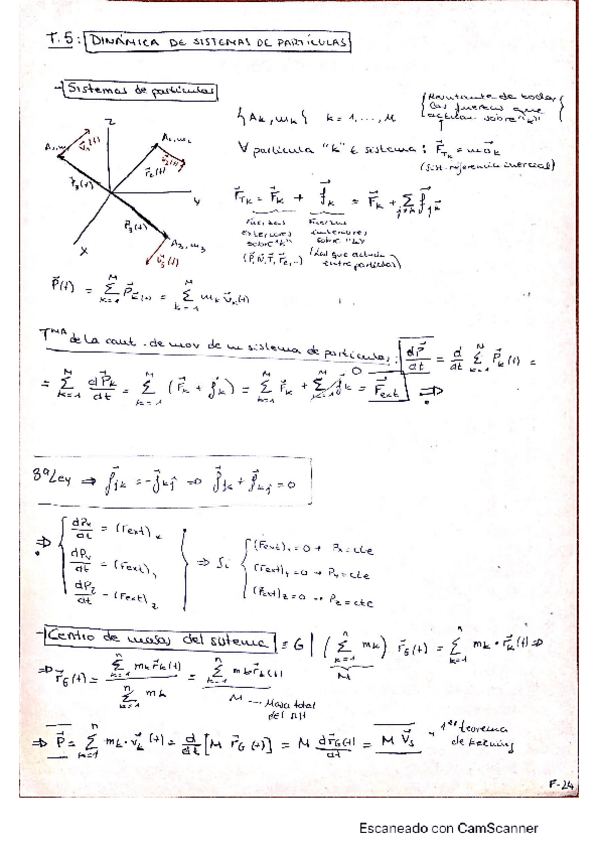 T.5: DINÁMICA DE SISTEMAS DE PARTÍCULAS
- Sistemas de partículas
{A_k, m_k} k = 1, ..., M
{Resultante de todas las fuerzas que actúan sobre "k"}
∀ partícula "k" ∈ sistema: F⃗_Tk = m a⃗_k
(Sist. referencia inercial)
Z
Y
X
A₃, m₃
r⃗₂(t)
v⃗₂(t)
r⃗₃(t)
v⃗₃(t)
F⃗_Tk = F⃗_k + f⃗_k = F⃗_k + Σ_{j≠k} f⃗_jk
Fuerzas exteriores sobre "k"
Fuerzas interiores sobre "k"
(Las que actúan entre partículas)
P⃗(t) = Σ_{k=1}^{M} P⃗_k(t) = Σ_{k=1}^{M} m_k v⃗_k(t)
T^MA de la cant. de mov de un sistema de partículas: dP⃗/dt = d/dt Σ_{k=1}^{N} P⃗_k(t) =
= Σ_{k=1}^{M} dP⃗_k/dt = Σ_{k=1}^{M} (F⃗_k + f⃗_k) = Σ_{k=1}^{M} F⃗_k + Σ_{k=1}^{M} f⃗_k 0 = F⃗_ext ⇒
3ª Ley ⇒ f⃗_jk = -f⃗_kj ⇒ f⃗_jk + f⃗_kj = 0
⇒ { dPx/dt = (Fext)x
dPy/dt = (Fext)y
dPz/dt = (Fext)z } ⇒ Si
{ (Fext)x = 0 → Px = cte
(Fext)y = 0 → Py = cte
(Fext)z = 0 → Pz = cte
- Centro de masas del sistema ≡ G | (Σ_{k=1}^{n} m_k) r⃗_G(t) = Σ_{k=1}^{n} m_k · r⃗_k(t) ⇒
M
⇒ r⃗_G(t) = Σ_{k=1}^{n} m_k r⃗_k(t) / Σ_{k=1}^{n} m_k = Σ_{k=1}^{n} m_k r⃗_k(t) / M
Masa total del
⇒ P⃗ = Σ_{k=1}^{n} m_k · v⃗_k(t) = d/dt [M r⃗_G(t)] = M dr⃗_G(t)/dt = M V⃗_G → 1er teorema de Koenig
F-24
Escaneado con CamScanner